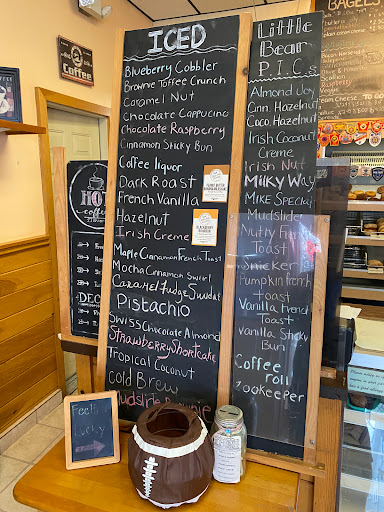 ICED
Blueberry Cobbler
Brownie Toffee Crunch
Caramel Nut
Chocolate Cappucino
Chocolate Raspberry
Cinnamon Sticky Bun
Coffee liquor
Dark Roast
French Vanilla
Hazelnut
Irish Creme
Maple Cinnamon French Toast
Mocha Cinnamon Swirl
Caramel Fudge Sundae
Pistachio
Swiss Chocolate Almond
Strawberry Shortcake
Tropical Coconut
Cold Brew
Mudslide Brownie
Little
Bear
PICS
Almond Joy
Cinn. Hazelnut
Coco Hazelnut
Irish Coconut
Creme
Irish Nut
Milky Way
Mike Special
Mudslide
Nutty French
Toast
Snicker
Pumpkin French
Toast
Vanilla French
Toast
Vanilla Sticky
Bun
Coffee
roll
Zookeeper
Coffee
HOT
coffee
DEC
BAGELS
Feelin
Lucky